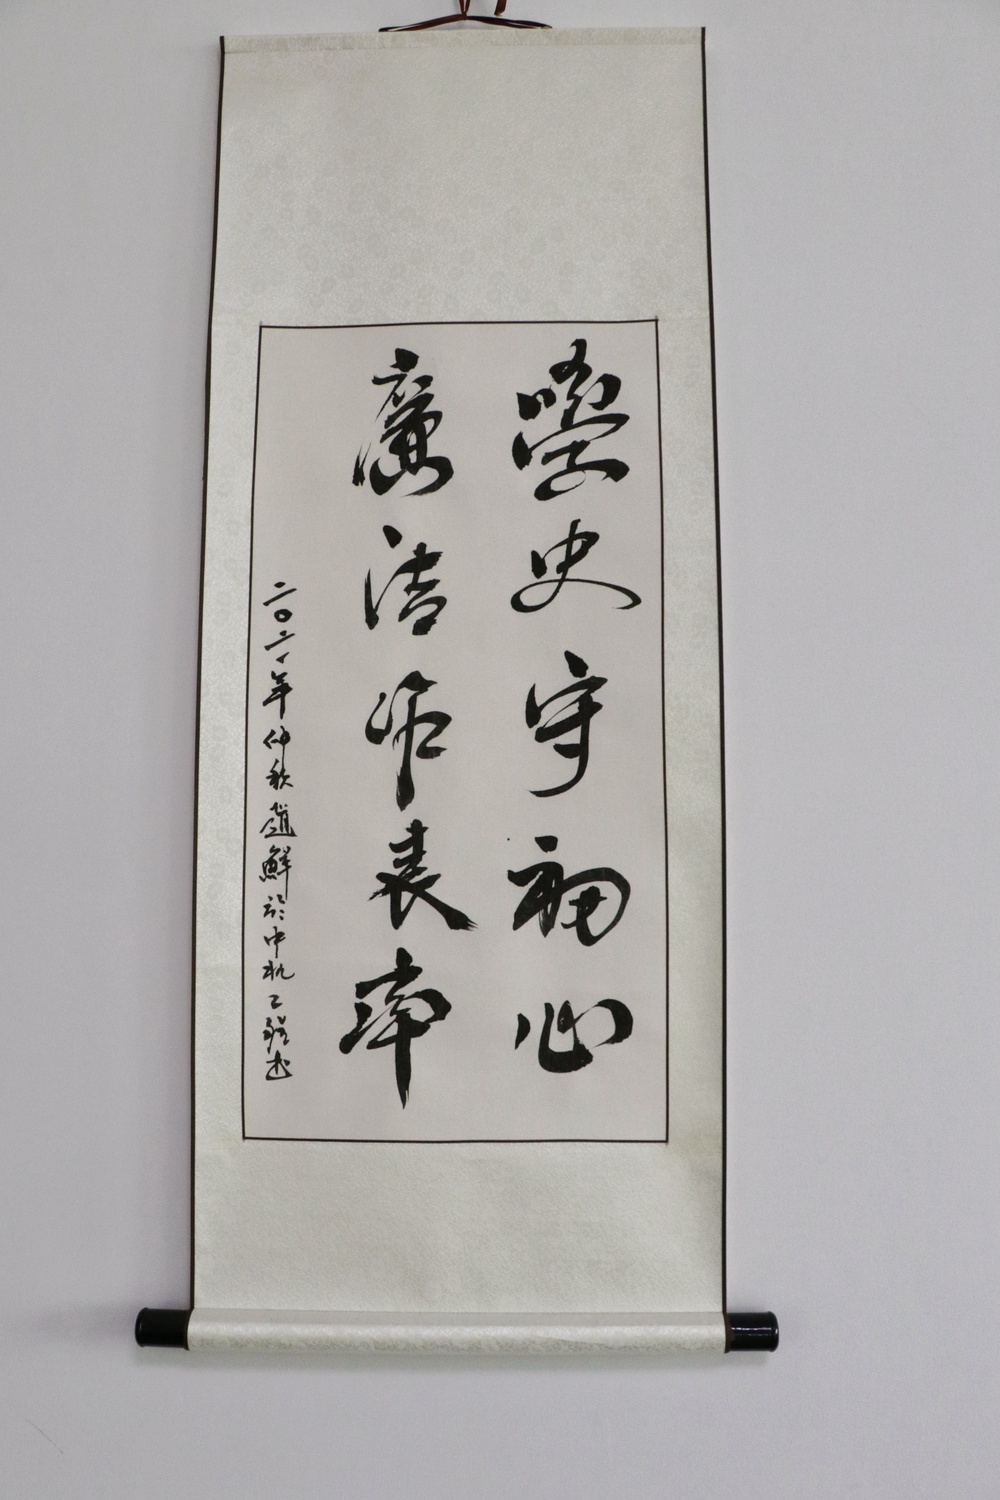 學史守初心
廉洁作表率
二〇二一年仲秋趙鮮於中杭